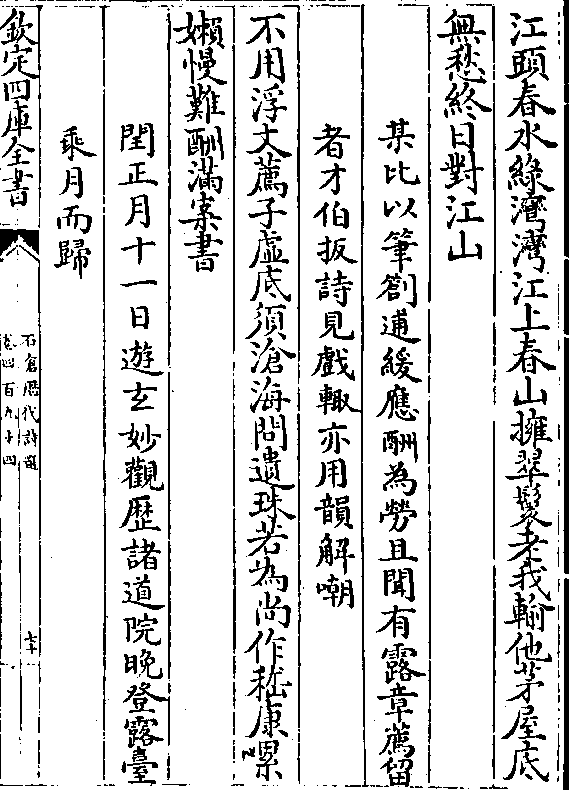 江頭春水綠灣灣江上春山擁翠鬟老我輸他茅屋底
無愁終日對江山
某比以筆劄逋緩應酬為勞且聞有露章薦留
者才伯扳詩見戲輙亦用韻解嘲
不用浮文薦子虛底須滄海問遺珠若為尚作嵇康累
嬾慢難酬滿案書
閏正月十一日遊玄妙觀歴諸道院晚登露臺
乘月而歸
欽定四庫全書
石倉歴代詩選
卷四百九十四